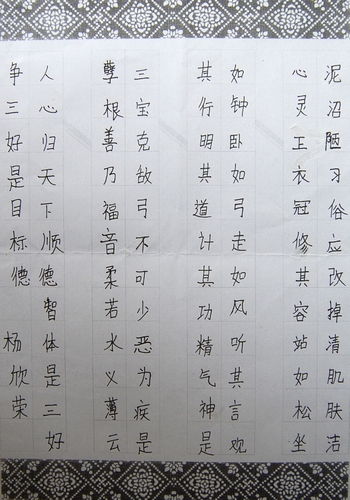 泥沼陋习俗应改掉清肌肤洁
心灵正衣冠修其容站如松坐
如钟卧如弓走如风听其言观
其行明其道计其功精气神是
三宝克敌弓不可少恶为疾是
孽根善乃福音柔若水义薄云
人心归天下顺德智体是三好
争三好是目标德 杨欣荣